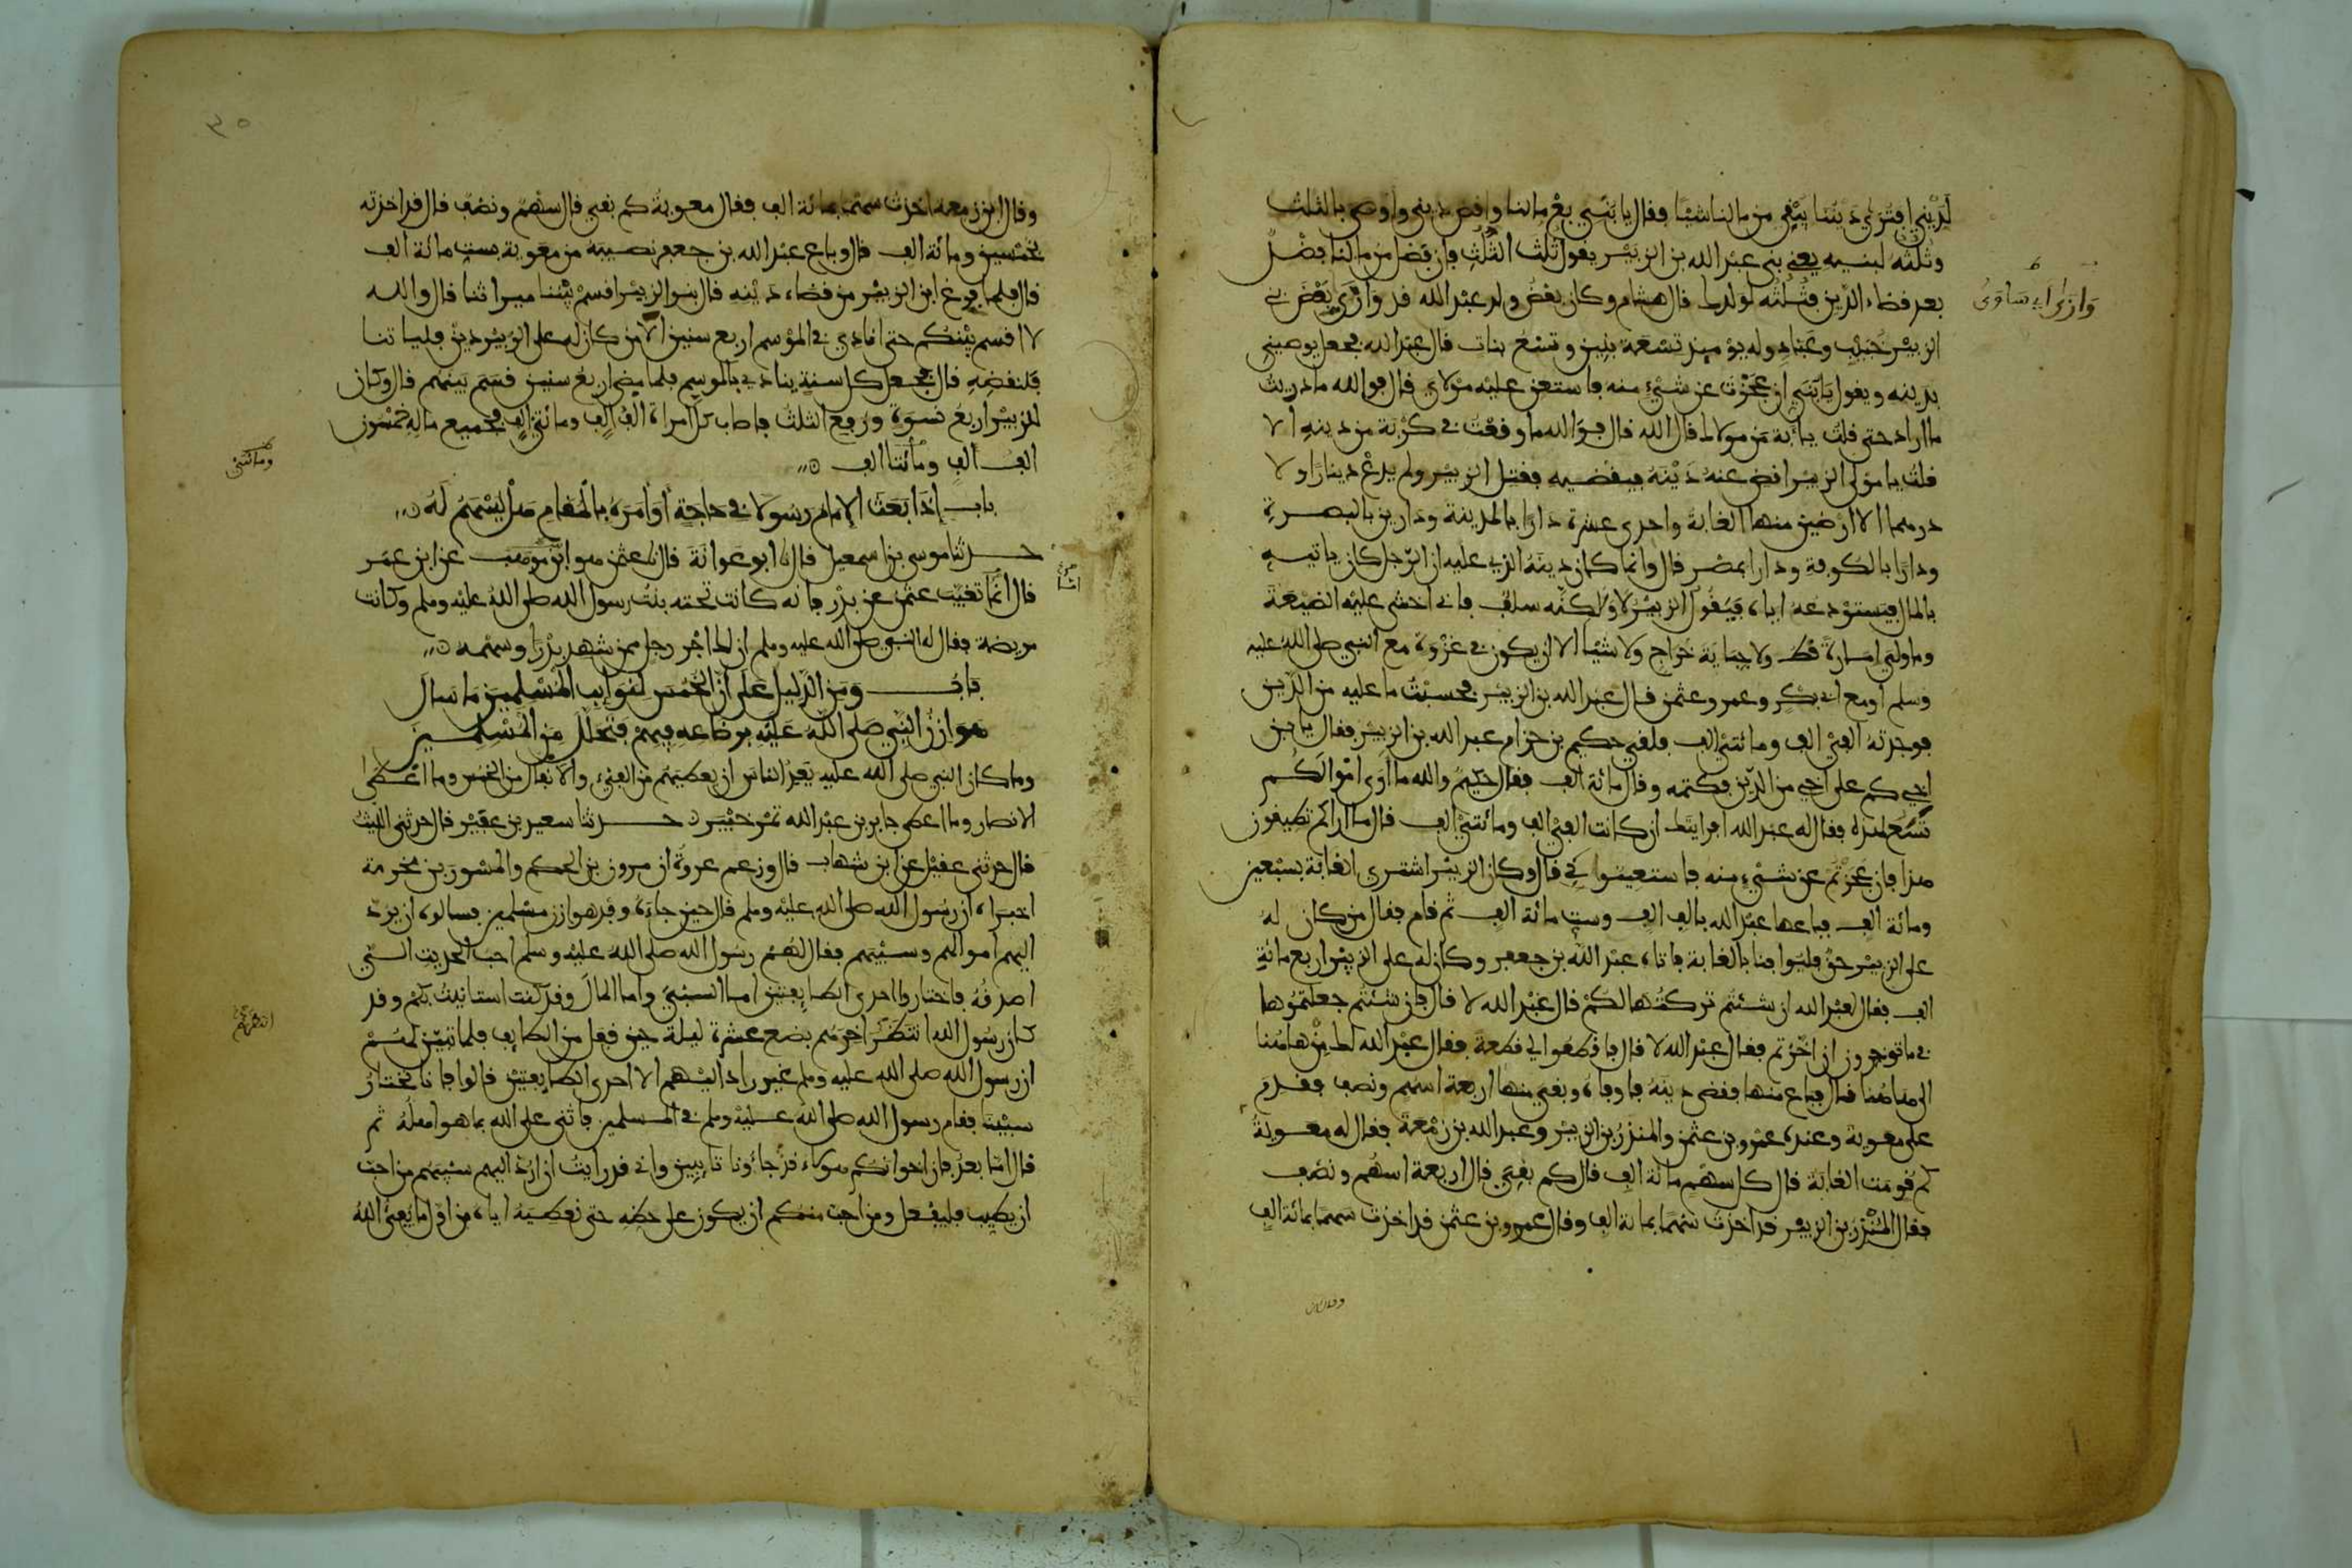 لَدَيْنِي افترى دَيننا يُبْقِي من مالنا شيئا فقال يا بُنَيّ بع مالنا واقض ديني وأوصى بالثلث
وثلثه لبنيه يعني بني عبد الله بن الزبير يقول ثلث الثلث فإن فضل من مالنا فضل
بعد قضاء الدين فثلثه لولدك قال هشام وكان بعض ولد عبد الله قد وازى بعض بني
وَازى أي سَاوَى
الزبير خبيب وعباد وله يومئذ تسعة بنين وتسع بنات قال عبد الله فجعل يوصيني
بدينه ويقول يا بُنَيّ إن عجزت عن شيء منه فاستعن عليه مولاي قال فوالله ما دريت
ما أراد حتى قلت يا أبة من مولاك قال الله قال فوالله ما وقعت في كربة من دينه إلا
قلت يا مولى الزبير اقض عنه دينه فيقضيه فقتل الزبير ولم يدع دينارا ولا
درهما إلا أرضين منها الغابة وإحدى عشرة دارا بالمدينة ودارين بالبصرة
ودارا بالكوفة ودارا بمصر قال وإنما كان دينه الذي عليه أن الرجل كان ياتيه
بالمال فيستودعه إياه فيقول الزبير لا ولكنه سلف فإني أخشى عليه الضيعة
وما ولي إمارة قط ولا جباية خراج ولا شيئا إلا أن يكون في غزوة مع النبي صلى الله عليه
وسلم أو مع أبي بكر وعمر وعثمن قال عبد الله بن الزبير فحسبت ما عليه من الدين
فوجدته ألفي ألف ومائتي ألف فلقي حكيم بن حزام عبد الله بن الزبير فقال يا بن
أخي كم على أخي من الدين فكتمه وقال مائة ألف فقال حكيم والله ما أرى أموالكم
تسع لهذه فقال له عبد الله أفرأيتك إن كانت ألفي ألف ومائتي ألف قال ما أراكم تطيقون
هذا فإن عجزتم عن شيء منه فاستعينوا بي قال وكان الزبير اشترى الغابة بسبعين
ومائة ألف فباعها عبد الله بألف ألف وست مائة ألف ثم قام فقال من كان له
على الزبير حق فليوافنا بالغابة فأتاه عبد الله بن جعفر وكان له على الزبير أربع مائة
ألف فقال لعبد الله إن شئتم تركتها لكم قال عبد الله لا قال فإن شئتم جعلتموها
في ما توخرون إن أخرتم فقال عبد الله لا قال فاقطعوا لي قطعة فقال عبد الله لك من هاهنا
إلى هاهنا قال فباع منها فقضى دينه فأوفاه وبقي منها أربعة أسهم ونصف فقدم
على معوية وعنده عمرو بن عثمن والمنذر بن الزبير وعبد الله بن زمعة فقال له معوية
كم قومت الغابة قال كل سهم مائة ألف قال كم بقي قال أربعة أسهم ونصف
فقال المنذر بن الزبير قد أخذت سهما بمائة ألف وقال عمرو بن عثمن قد أخذت سهما بمائة ألف
وقال ابن
٣٥
وقال ابن زمعة أخذت سهما بمائة ألف فقال معوية كم بقي قال سهم ونصف قال قد أخذته
بخمسين ومائة ألف قال وباع عبد الله بن جعفر نصيبه من معوية بست مائة ألف
قال فلما فرغ ابن الزبير من قضاء دينه قال بنو الزبير اقسم بيننا ميراثنا قال والله
لا أقسم بينكم حتى أنادي في الموسم أربع سنين ألا من كان له على الزبير دين فلياتنا
فلنقضه قال فجعل كل سنة ينادي بالموسم فلما مضى أربع سنين قسم بينهم قال وكان
للزبير أربع نسوة ورفع الثلث فأصاب كل امرأة ألف ألف ومائتي ألف فجميع ماله خمسون
ألف ألف ومائتا ألف
ومائتي
باب إذا بعث الإمام رسولا في حاجة أو أمره بالمقام هل يسهم له
حدثنا موسى بن إسمعيل قال نا أبو عوانة قال نا عثمن هو ابن موهب عن ابن عمر
قال إنما تغيب عثمن عن بدر فإنه كانت تحته بنت رسول الله صلى الله عليه وسلم وكانت
مريضة فقال له النبي صلى الله عليه وسلم إن لك أجر رجل ممن شهد بدرا وسهمه
باب ومن الدليل على أن الخمس لنوايب المسلمين ما سأل
هوازن النبي صلى الله عليه برضاعه فيهم فتحلل من المسلمين
وما كان النبي صلى الله عليه يعد الناس أن يعطيهم من الفيء والأنفال من الخمس وما أعطى
الأنصار وما أعطى جابر بن عبد الله تمر خيبر حدثنا سعيد بن عفير قال حدثني الليث
قال حدثني عقيل عن ابن شهاب قال وزعم عروة أن مرون بن الحكم والمسور بن مخرمة
أخبراه أن رسول الله صلى الله عليه وسلم قال حين جاءه وفد هوازن مسلمين فسألوه أن يرد
إليهم أموالهم وسبيهم فقال لهم رسول الله صلى الله عليه وسلم أحب الحديث إلي
أصدقه فاختاروا إحدى الطايفتين إما السبي وإما المال وقد كنت استانيت بكم وقد
كان رسول الله انتظر آخرهم بضع عشرة ليلة حين قفل من الطايف فلما تبين لهم
أن رسول الله صلى الله عليه وسلم غير راد إليهم إلا إحدى الطايفتين قالوا فإنا نختار
سبينا فقام رسول الله صلى الله عليه وسلم في المسلمين فأثنى على الله بما هو أهله ثم
قال أما بعد فإن إخوانكم هؤلاء قد جاءونا تايبين وإني قد رأيت أن أرد إليهم سبيهم من أحب
أن يطيب فليفعل ومن أحب منكم أن يكون على حظه حتى نعطيه إياه من أول ما يفيء الله